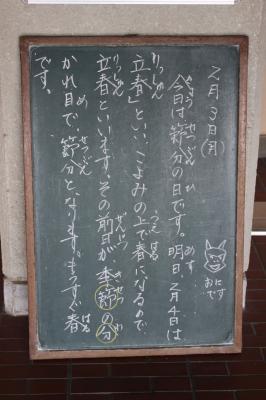 2月3日(月)
今日は節分の日です。明日2月4日は、
立春」といい、こよみの上で春になるので
立春といいます。その前日が、季節の分
かれ目で、節分と、なります。まっすぐ春
です。
おに
です
きょう
せつぶん
ひ
あす
りっしゅん
うえ
はる
りっしゅん
ぜんじつ
きせつ
わ
め
せつぶん
はる